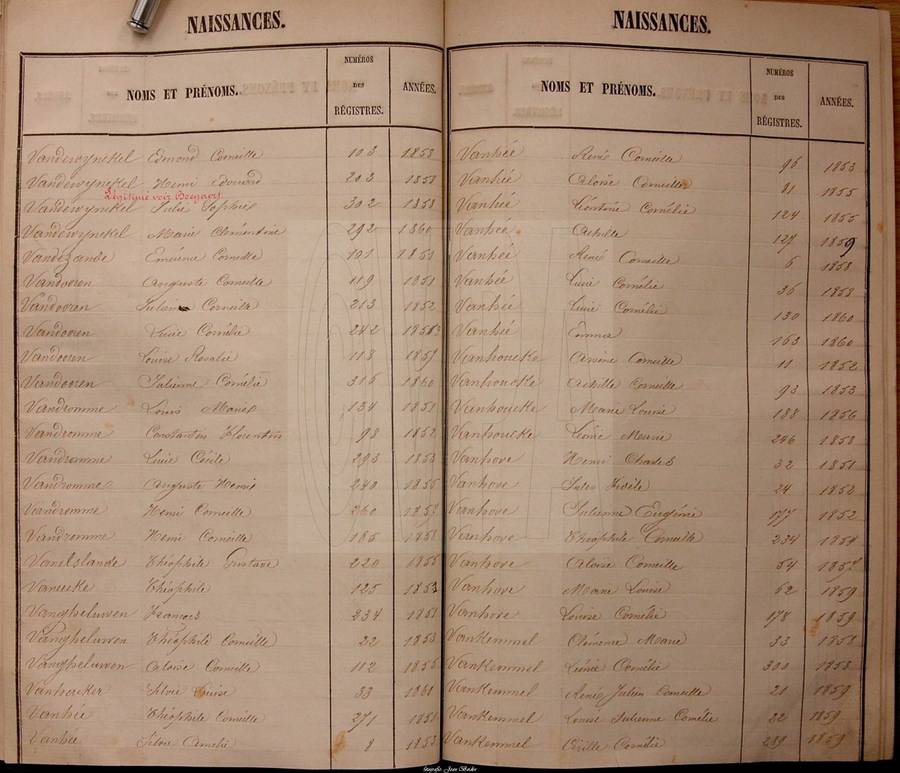 NAISSANCES.
NOMS ET PRÉNOMS.
NUMÉROS
DES
RÉGISTRES.
ANNÉES.
Vandewynckel Edmond Corneille 103 1853
Vandewynckel Henri Edouard 202 1858
Légitimé voir Boegaert
Vandewynckel Julie Sophie 302 1858
Vandewynckel Marie Clémentine 292 1860
Vandezande Emérence Corneille 101 1851
Vandooren Auguste Corneille 119 1851
Vandooren Corneille 213 1852
Vandooren Lucie Cornélie 242 1853
Vandooren Louise Rosalie 118
Vandooren Julienne Cornélie 316 1860
Vandromme Louis Marie 134 1851
Vandromme Constantin Florentin 98 1852
Vandromme Lucie Cécile 293 1853
Vandromme Auguste Henri 240 1855
Vandromme Henri Corneille 260
Vandromme Henri Corneille 185
Vanelslande Théophile Gustave 220 1855
Vaneecke Théophile 125 1853
Vangheluwen François 234 1851
Vangheluwen Théophile Corneille 22 1853
Vangheluwen Aloïse Corneille 112 1855
Vanhoucker Silvie Louise 33 1861
Vanhée Théophile Corneille 271 1851
Vanhée Silvie Cornélie 8 1853
NAISSANCES.
NOMS ET PRÉNOMS.
NUMÉROS
DES
RÉGISTRES.
ANNÉES.
Vanhée René Corneille 96 1853
Vanhée Aloïse Corneille 81 1855
Vanhée Léontine Cornélie 124 1855
Vanhée Achille 127 1859
Vanhée René Corneille 6 1858
Vanhée Lucie Cornélie 36 1858
Vanhée Lucie Cornélie 130 1860
Vanhée Emma 163 1860
Vanhoucke Arsène Corneille 11 1852
Vanhoucke Achille Corneille 93 1853
Vanhoucke Marie Louise 188 1856
Vanhoucke Léonie Marie 246 1858
Vanhove Henri Charles 32 1851
Vanhove Jules Fidèle 24 1850
Vanhove Julienne Eugénie 177 1852
Vanhove Théophile Corneille 234 1854
Vanhove Aloïse Corneille 54
Vanhove Marie Louise 62 1859
Vanhove Louise Cornélie 178 1859
Vankemmel Clémence Marie 33 1858
Vankemmel Léonie Cornélie 300 1853
Vankemmel René Julien Corneille 21 1859
Vankemmel Louise Julienne Cornélie 22 1859
Vankemmel Cirille Cornélie 289 1859